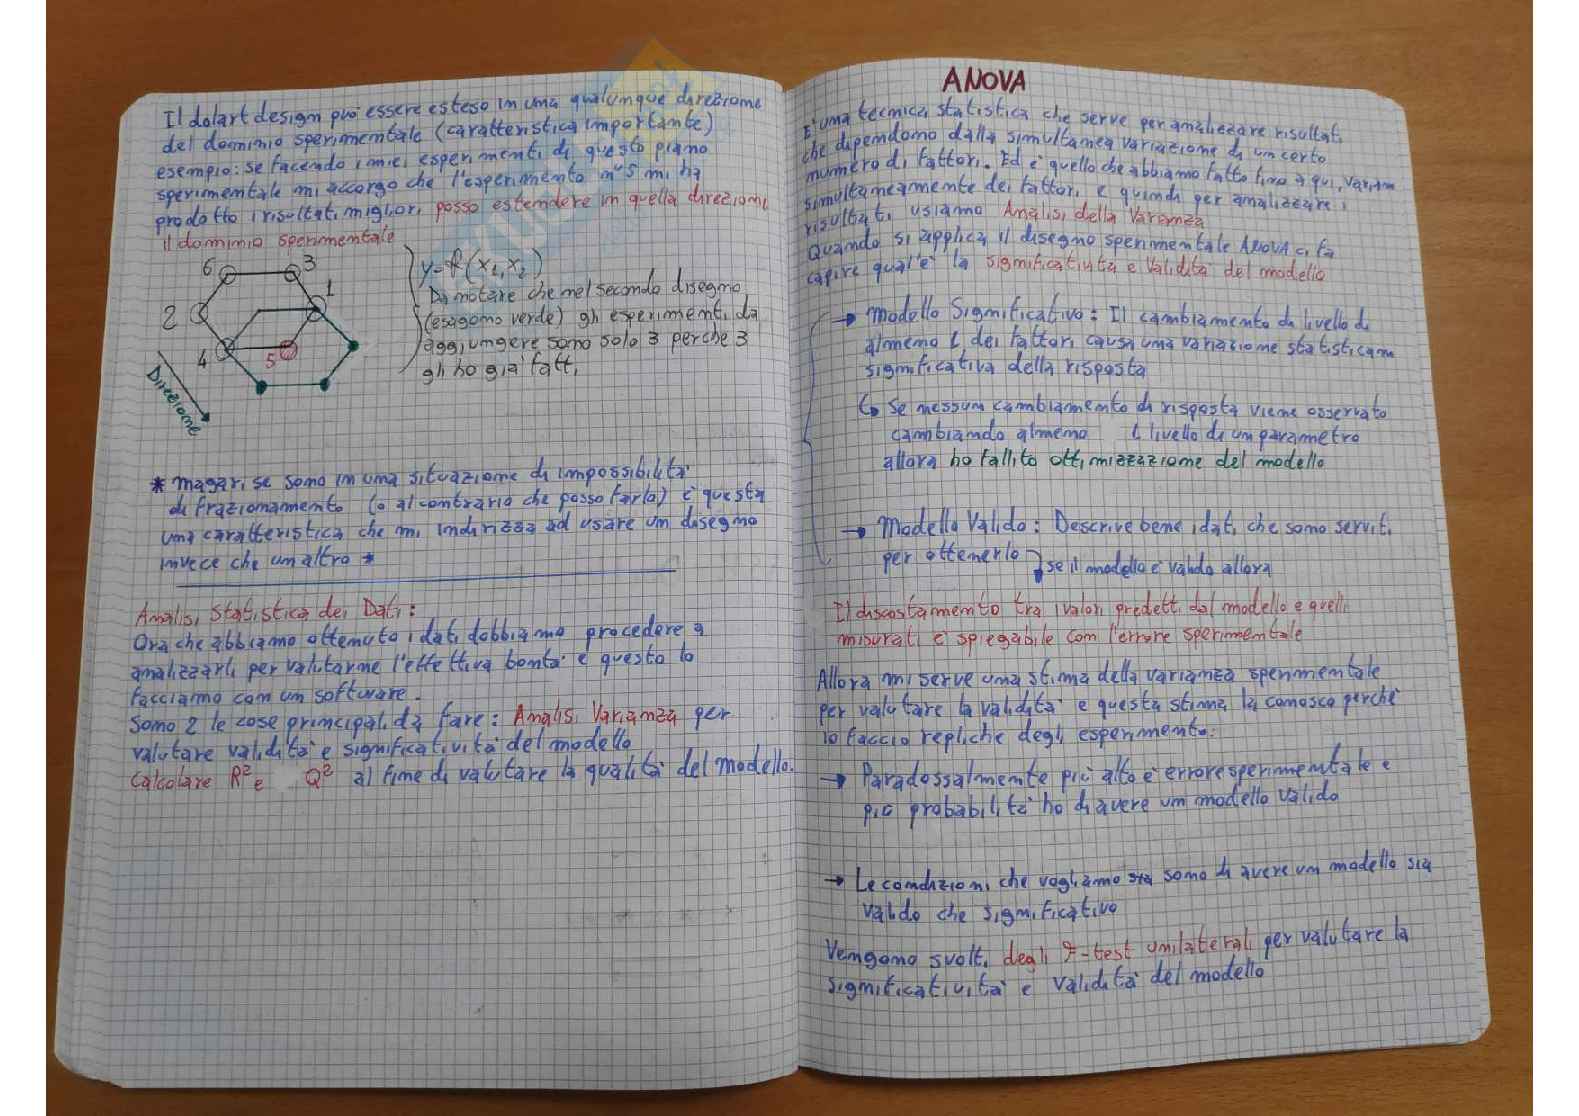 Il dolart design può essere esteso in una qualunque direzione
del dominio sperimentale (caratteristica importante)
esempio: se facendo i miei esperimenti di questo piano
sperimentale mi accorgo che l'esperimento n°5 mi ha
prodotto i risultati migliori posso estendere in quella direzione
il dominio sperimentale
6 3
1
2
4 5
Direzione
y=f(x1,x2)
Da notare che nel secondo disegno
(esagono verde) gli esperimenti da
aggiungere sono solo 3 perche 3
gli ho già fatti
* magari se sono in una situazione di impossibilità
di frazionamento (o al contrario che posso farlo) è questa
una caratteristica che mi indirizza ad usare un disegno
invece che un altro *
Analisi Statistica dei Dati:
Ora che abbiamo ottenuto i dati dobbiamo procedere a
analizzarli per valutarne l'effettiva bontà e questo lo
facciamo con un software.
Sono 2 le cose principali da fare: Analisi Varianza per
valutare validità e significatività del modello
Calcolare R² e Q² al fine di valutare la qualità del modello.
ANOVA
E' una tecnica statistica che serve per analizzare risultati
che dipendono dalla simultanea variazione di un certo
numero di fattori. Ed è quello che abbiamo fatto fino a qui, variam
simultaneamente dei fattori e quindi per analizzare i
risultati usiamo Analisi della Varianza
Quando si applica il disegno sperimentale ANOVA ci fa
capire qual'è la significatività e validità del modello
→ Modello Significativo: Il cambiamento di livello di
almeno 1 dei fattori causa una variazione statisticam
significativa della risposta
↳ Se nessun cambiamento di risposta viene osservato
cambiando almeno 1 livello di un parametro
allora ho fallito ottimizzazione del modello
→ Modello Valido: Descrive bene i dati che sono serviti
per ottenerlo se il modello è valido allora
Il discostamento tra i valori predetti dal modello e quelli
misurati è spiegabile con l'errore sperimentale
Allora mi serve una stima della varianza sperimentale
per valutare la validità e questa stima la conosco perché
io faccio repliche degli esperimenti.
→ Paradossalmente più alto è errore sperimentale e
più probabilità ho di avere un modello valido
→ Le condizioni che vogliamo sono di avere un modello sia
valido che significativo
Vengono svolti degli F-test unilaterali per valutare la
significatività e validità del modello